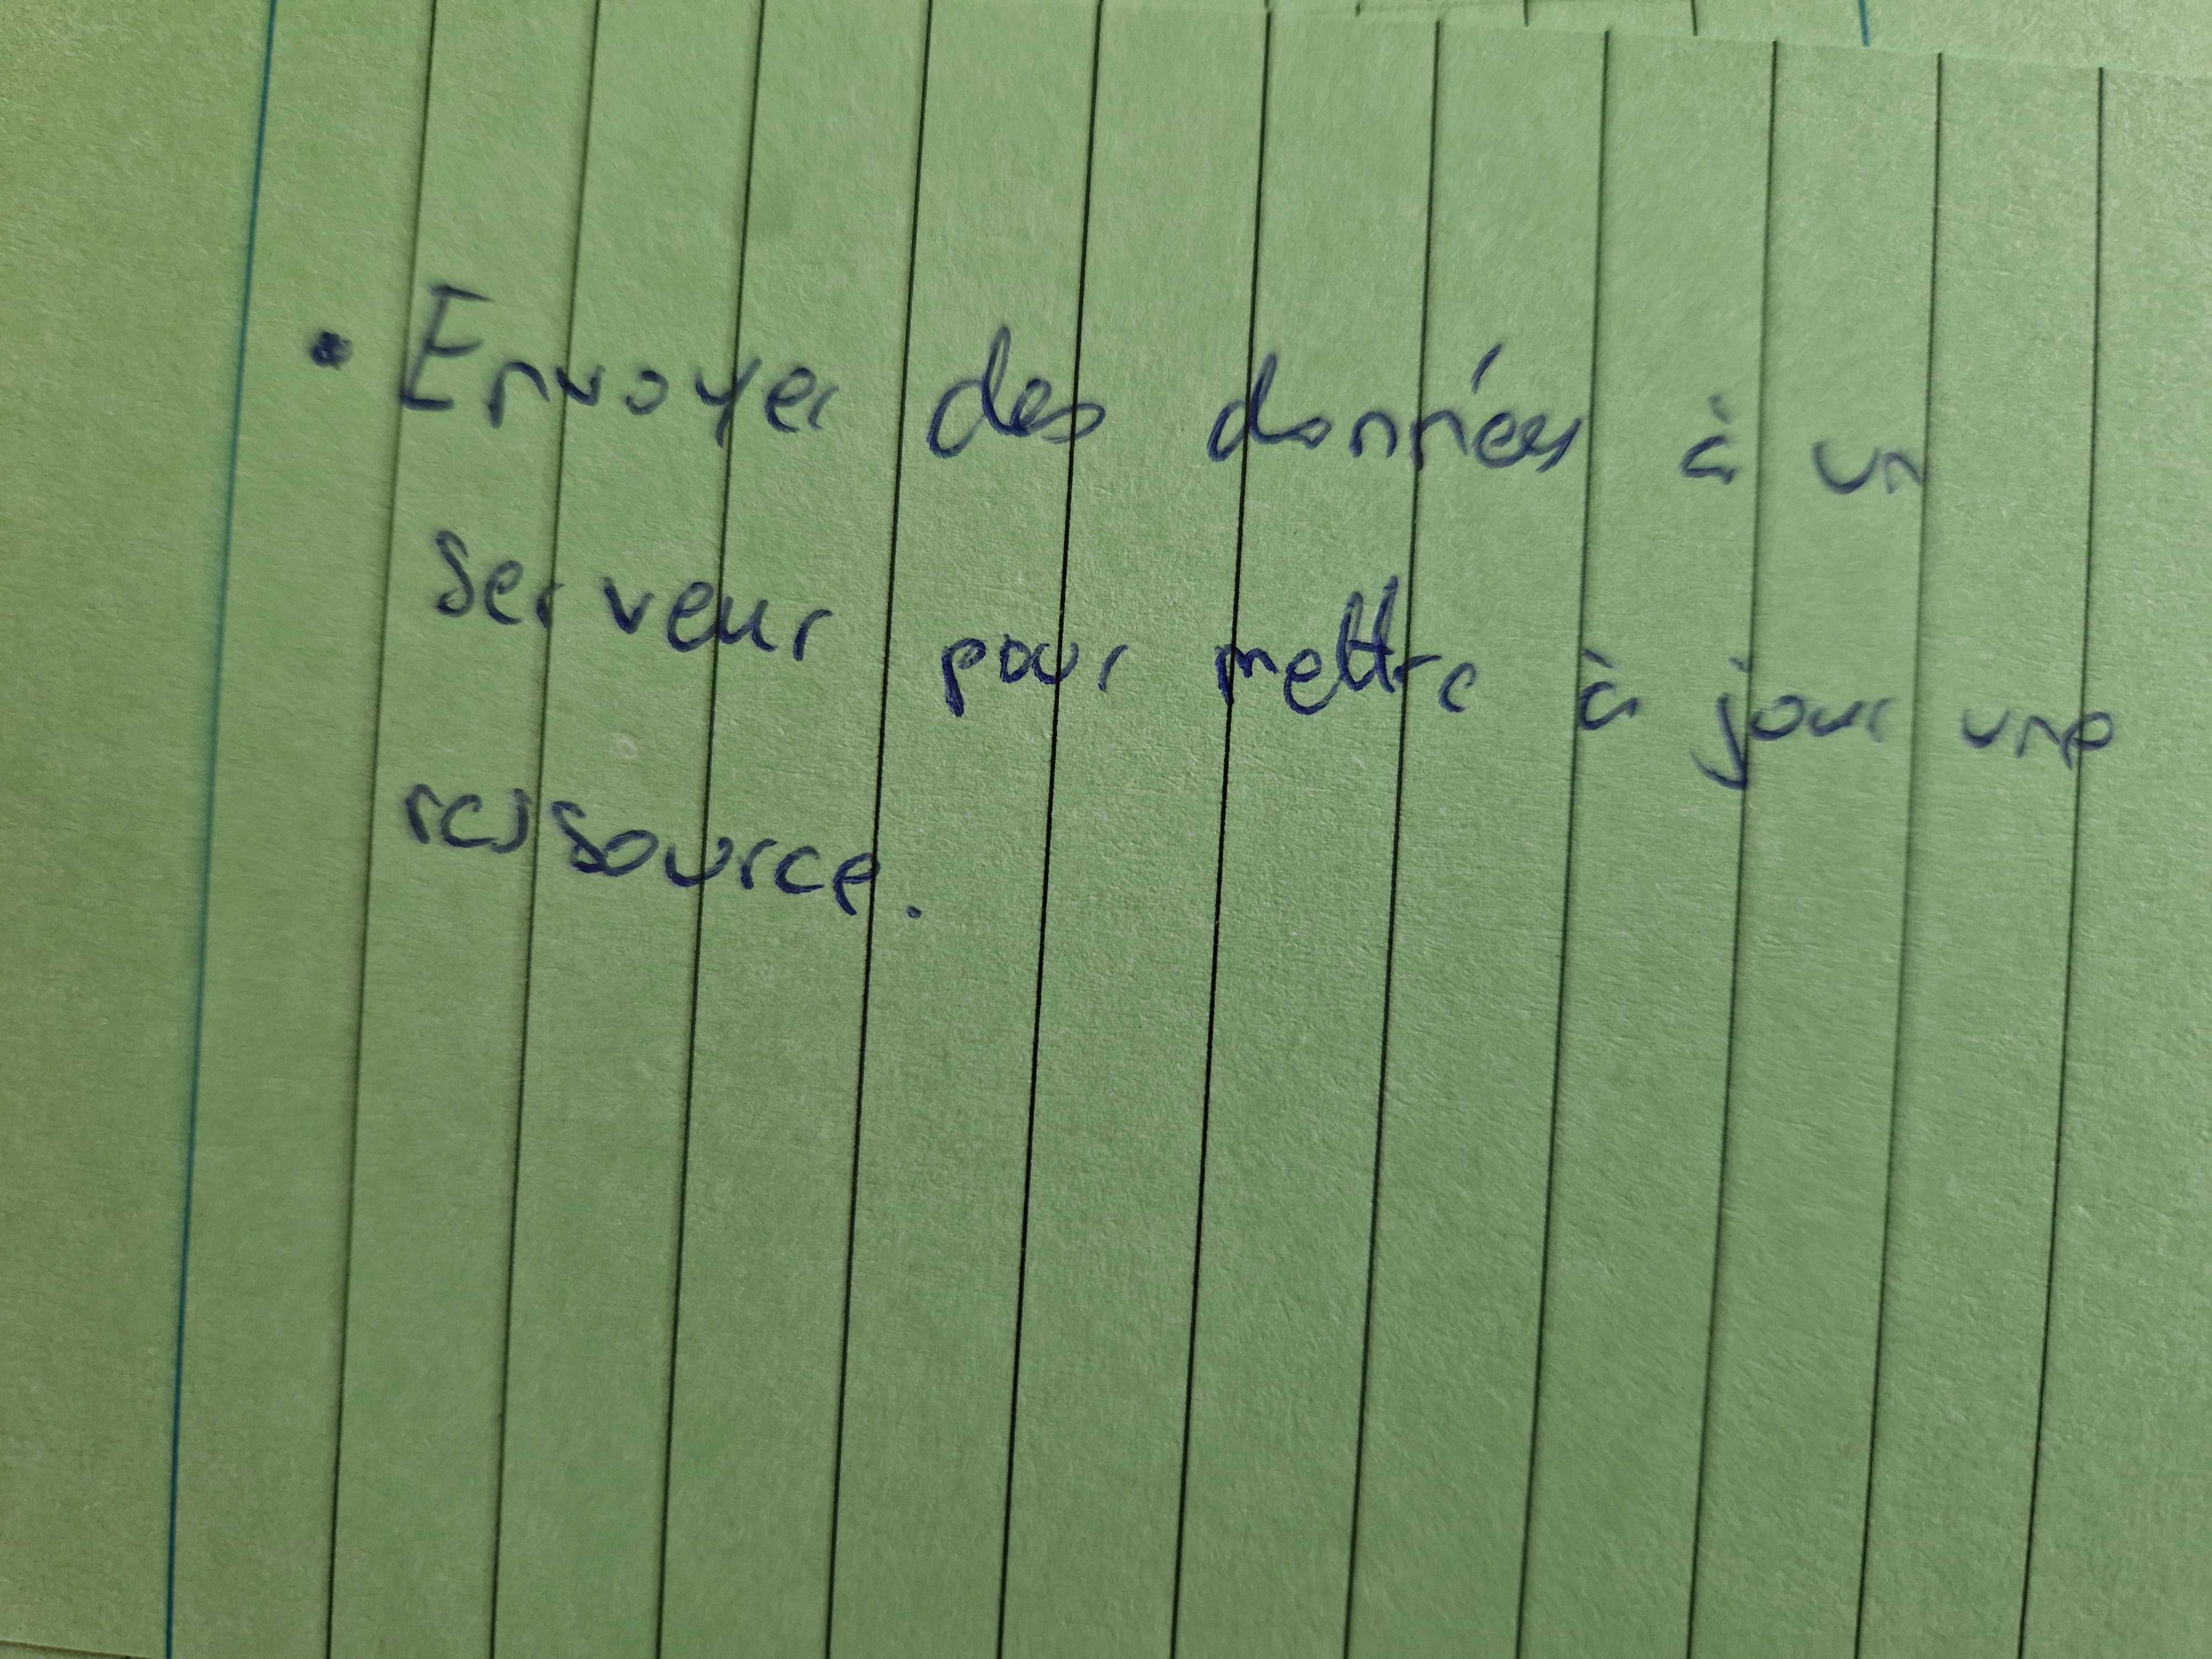 • Envoyer des données à un
serveur pour mettre à jour une
ressource.